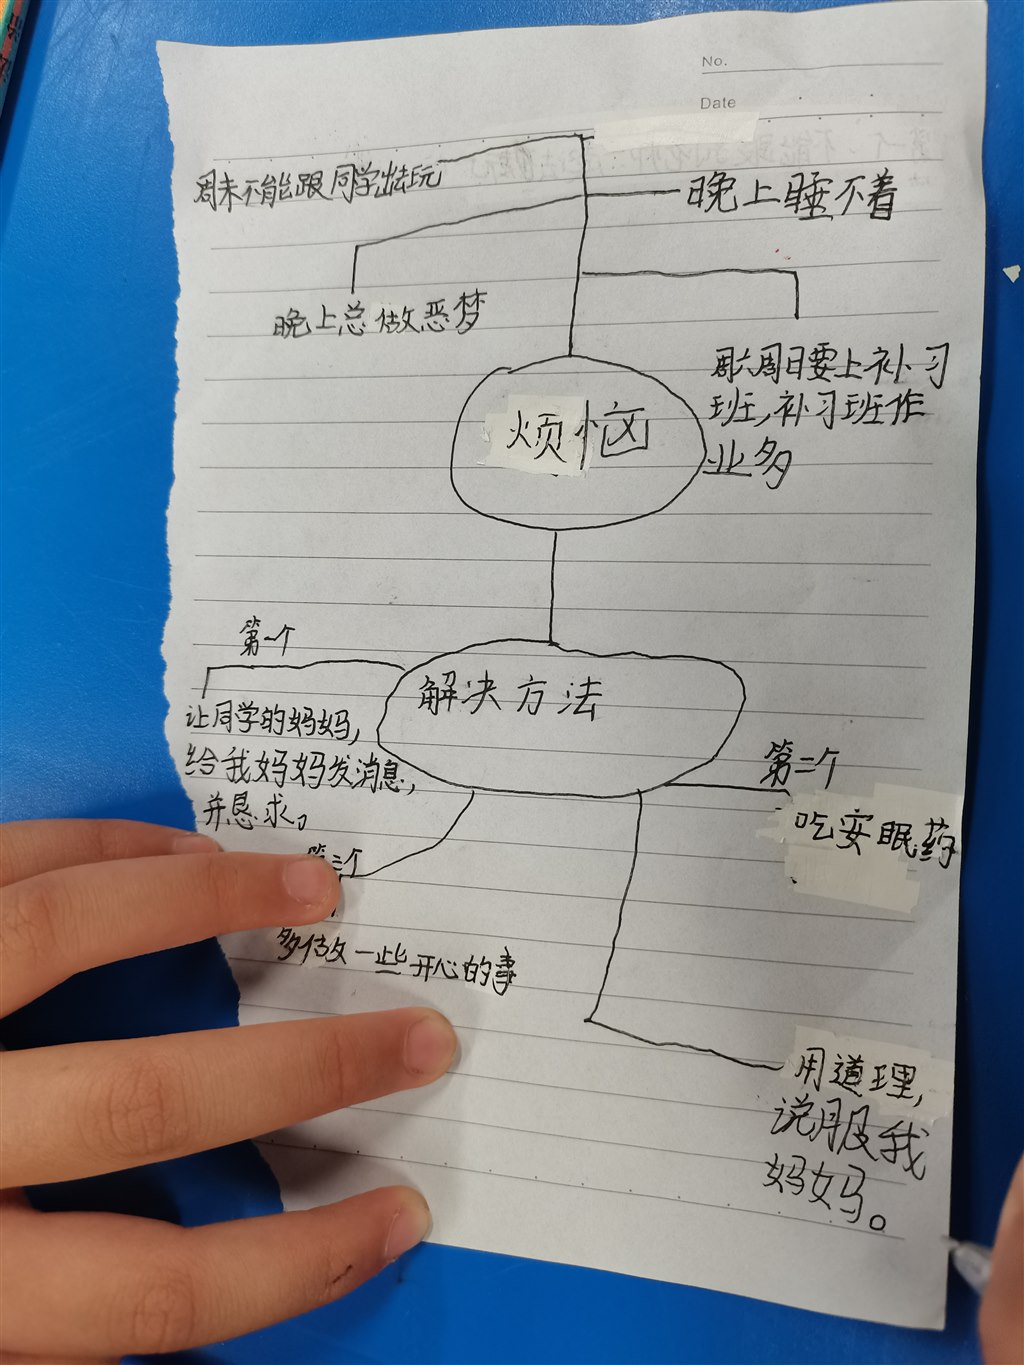 No.
Date
周末不能跟同学出去玩
晚上睡不着
晚上总做恶梦
周六周日要上补习
班,补习班作
业多
烦恼
第一个
解决方法
让同学的妈妈,
给我妈妈发消息,
并恳求。
第二个
吃安眠药
第三个
多做一些开心的事
用道理,
说服我
妈妈。